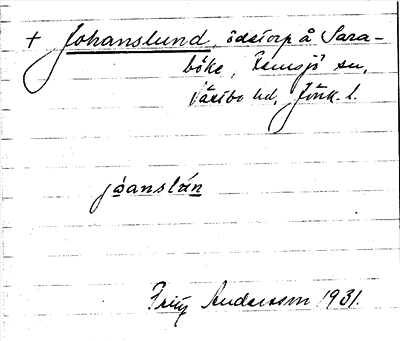 + Johanslund, ödetorp å Sara-
böke, Femsjö sn,
Västbo hd, Jönk. l.
jòanslún
Fritz Andersson 1931.